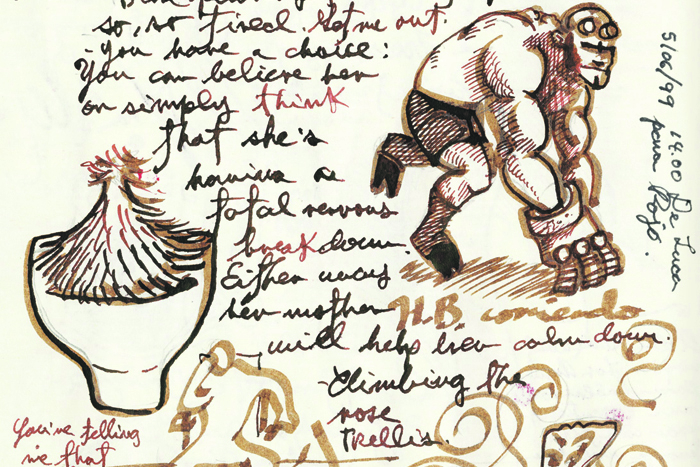 so, so tired. Let me out.
- You have a choice:
You can believe her
or simply think
that she's
having a
total nervous
breakdown.
Either way
her mother
will help her calm down.
- Climbing the
rose
trellis.
H.B. corriendo
You're telling
me that
5/06/99 14.00 De Luca
para Rojo.